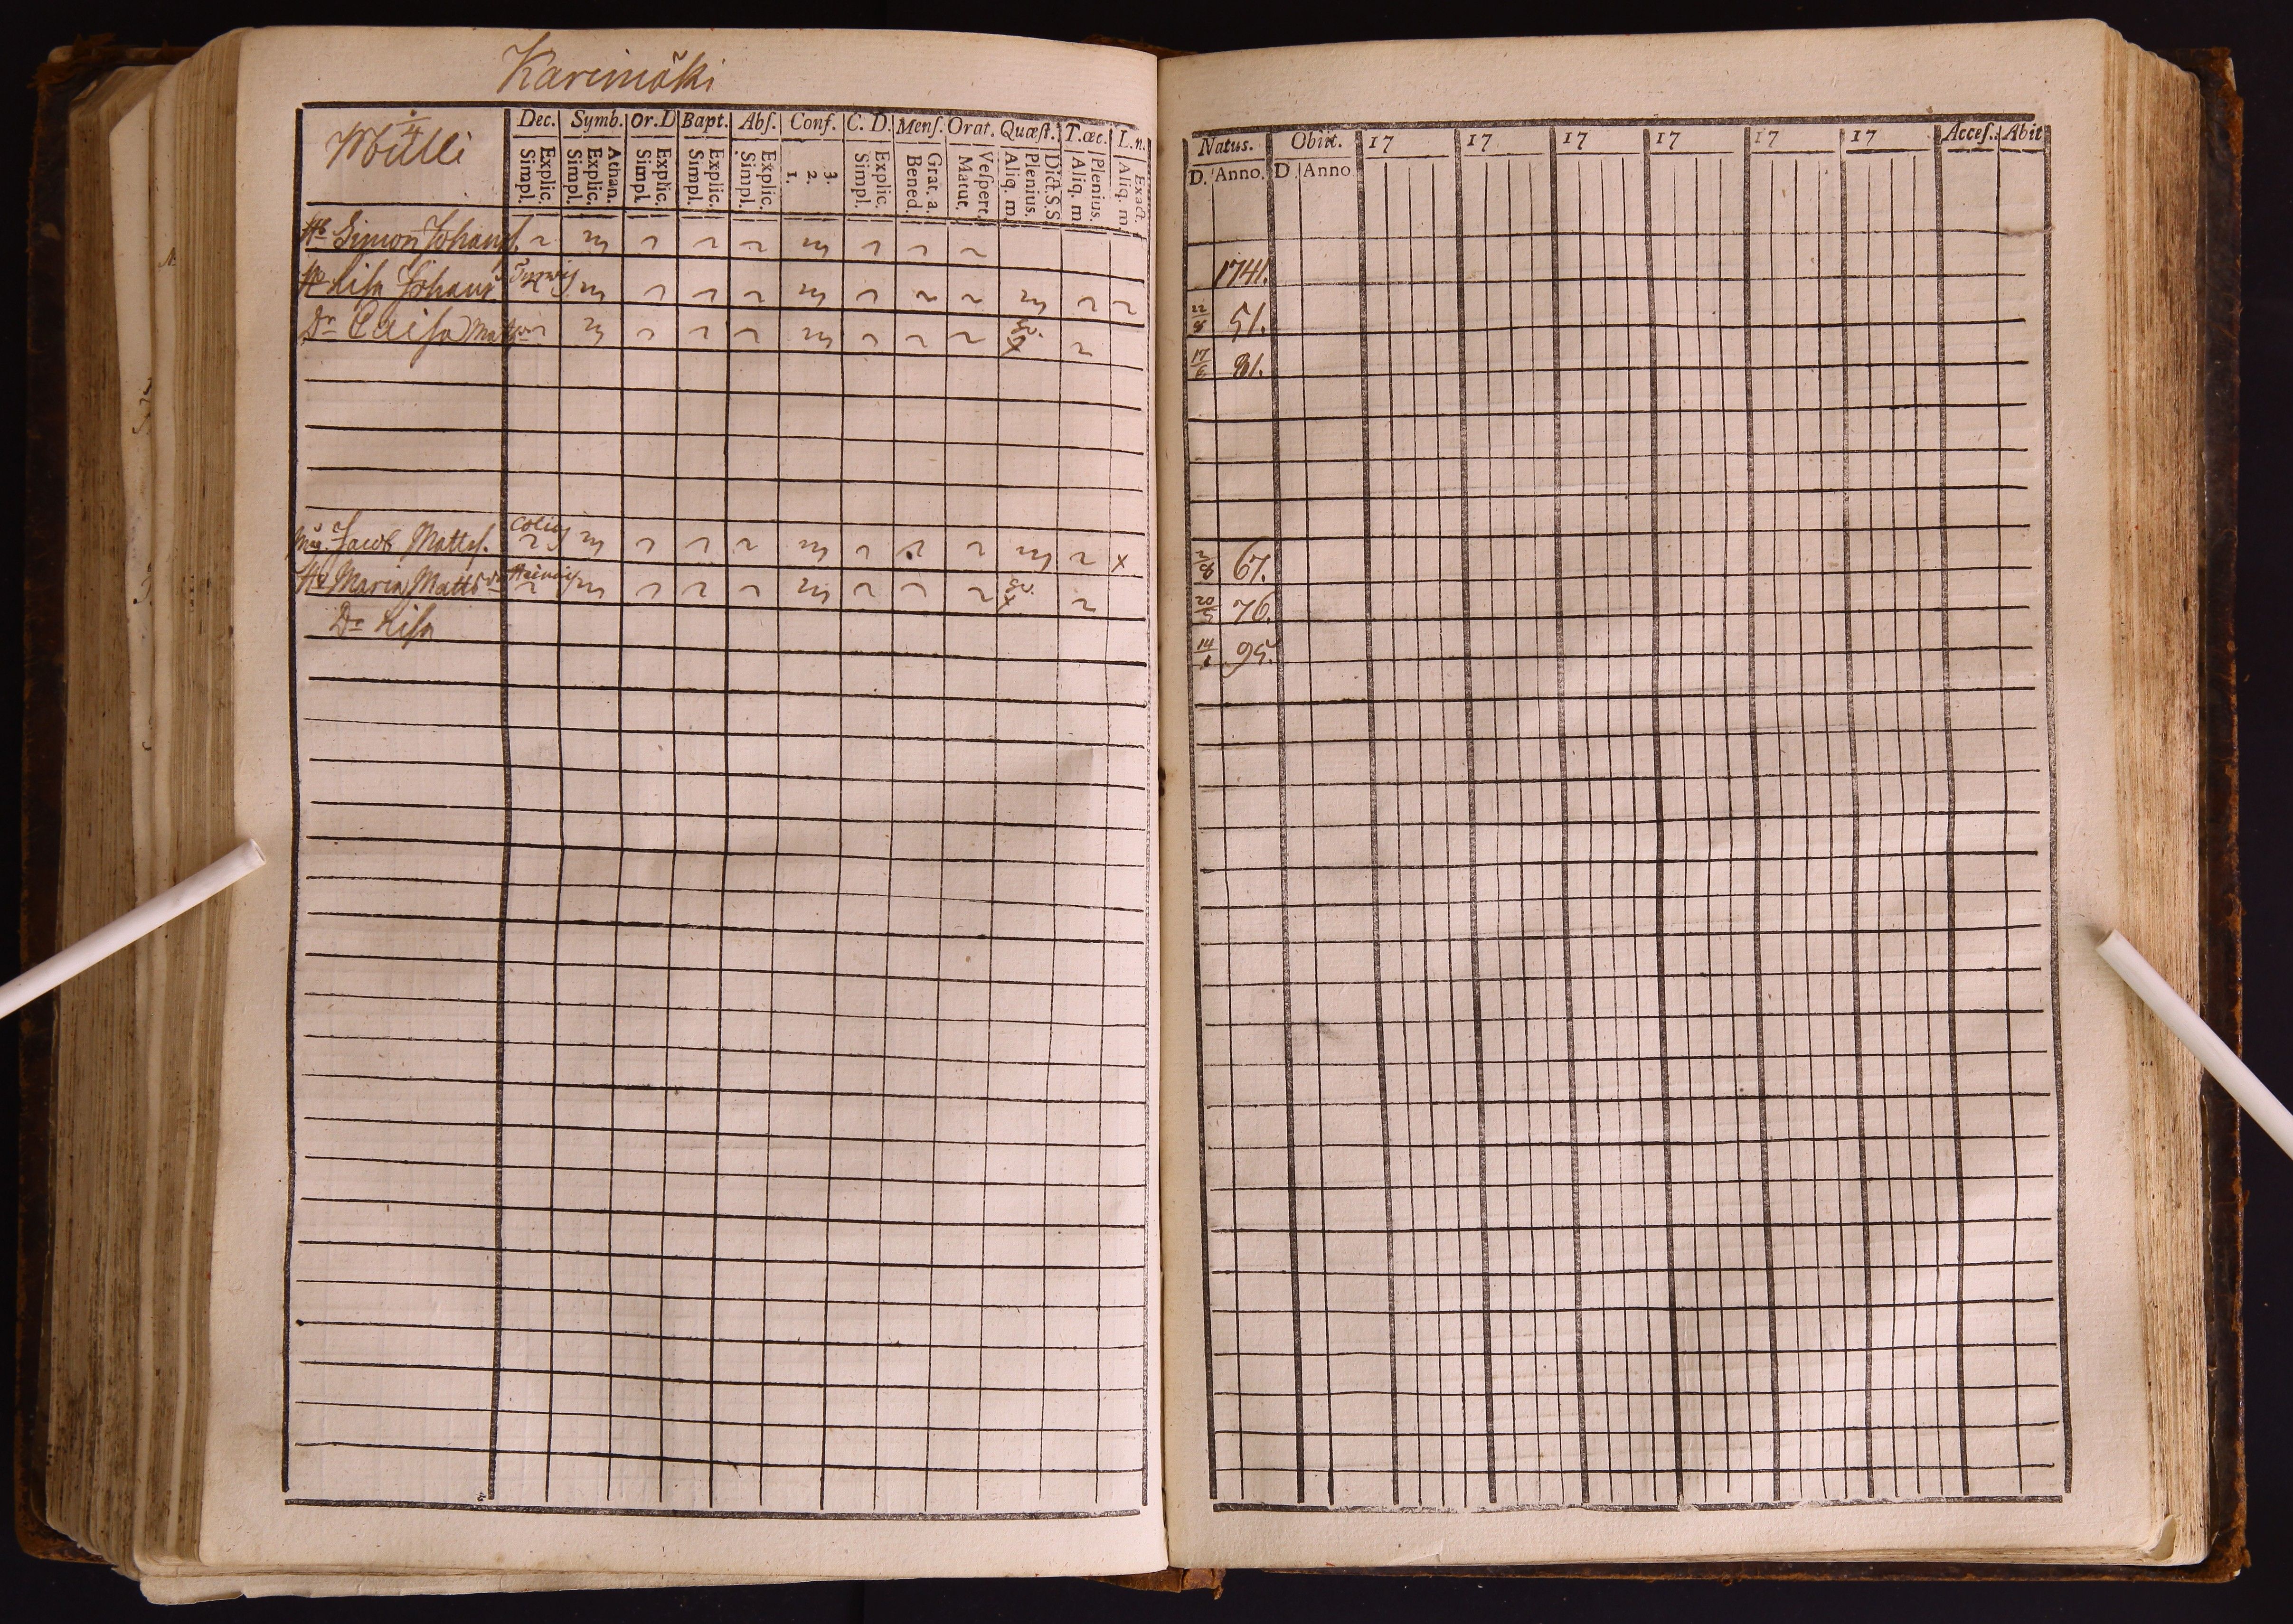 Karimäki
1/4
Dec. Symb. Or.D Bapt. Abſ. Conf. C. D. Menſ. Orat. Quæſt. T.æc. L.n.
Simpl. Explic. Simpl. Explic. Athan. Simpl. Explic. Simpl. Explic. Simpl. Explic. 1. 2. 3. Simpl. Explic. Bened. Grat. a. Matut. Veſpert. Aliq. m Plenius. Dict.S.S Aliq. m Plenius. Aliq. m. Exact.
Simon Johans.
Lisa Johans
Dr Caisa Matts
Jacob Mattss.
Maria Matts
Dr Lisa
Natus. Obiit. 17 17 17 17 17 17 Acceſ. Abit
D. Anno. D. Anno
1741.
22/8 51.
17/6 81.
67.
20/5 76.
14/1 95.